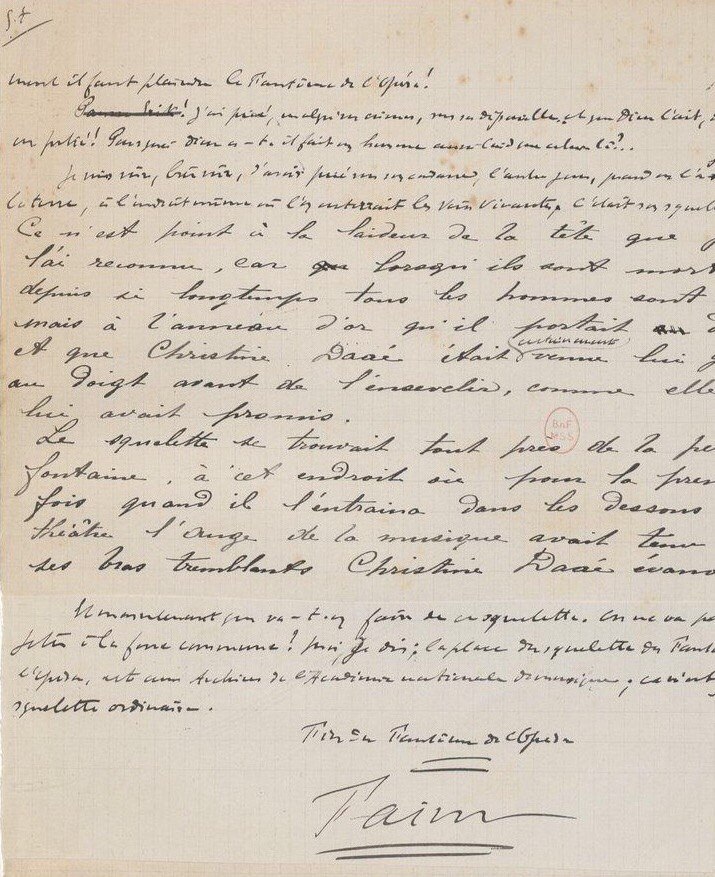 ment il faut plaindre le Fantôme de l'Opéra!
J'ai prié, malgré ses crimes, sur sa dépouille et que Dieu l'ait,
en pitié! Pourquoi Dieu a-t-il fait un homme aussi laid que celui là?..
Je suis sûr, bien sûr, d'avoir prié sur son cadavre, l'autre jour, quand on l'a
la terre, à l'endroit même où l'on enterrait les voix vivantes; c'était son squele
Ce n'est point à la laideur de la tête que j
l'ai reconnu, car lorsqu'ils sont mort
depuis si longtemps tous les hommes sont
mais à l'anneau d'or qu'il portait
et que Christine Daaé était certainement venue lui g
au doigt avant de l'ensevelir, comme elle
lui avait promis.
Le squelette se trouvait tout près de la pe
fontaine, à cet endroit où pour la prem
fois quand il l'entraina dans les dessous
théâtre l'ange de la musique avait tenu
ses bras tremblants Christine Daaé évano
Et maintenant que va-t-on faire de ce squelette. On ne va pa
jeter à la fosse commune! Moi, je dis: la place du squelette du Fantô
l'Opéra, est aux Archives de l'Académie nationale de musique; ça n'est
squelette ordinaire.
Fin du Fantôme de l'Opéra
BnF
MSS